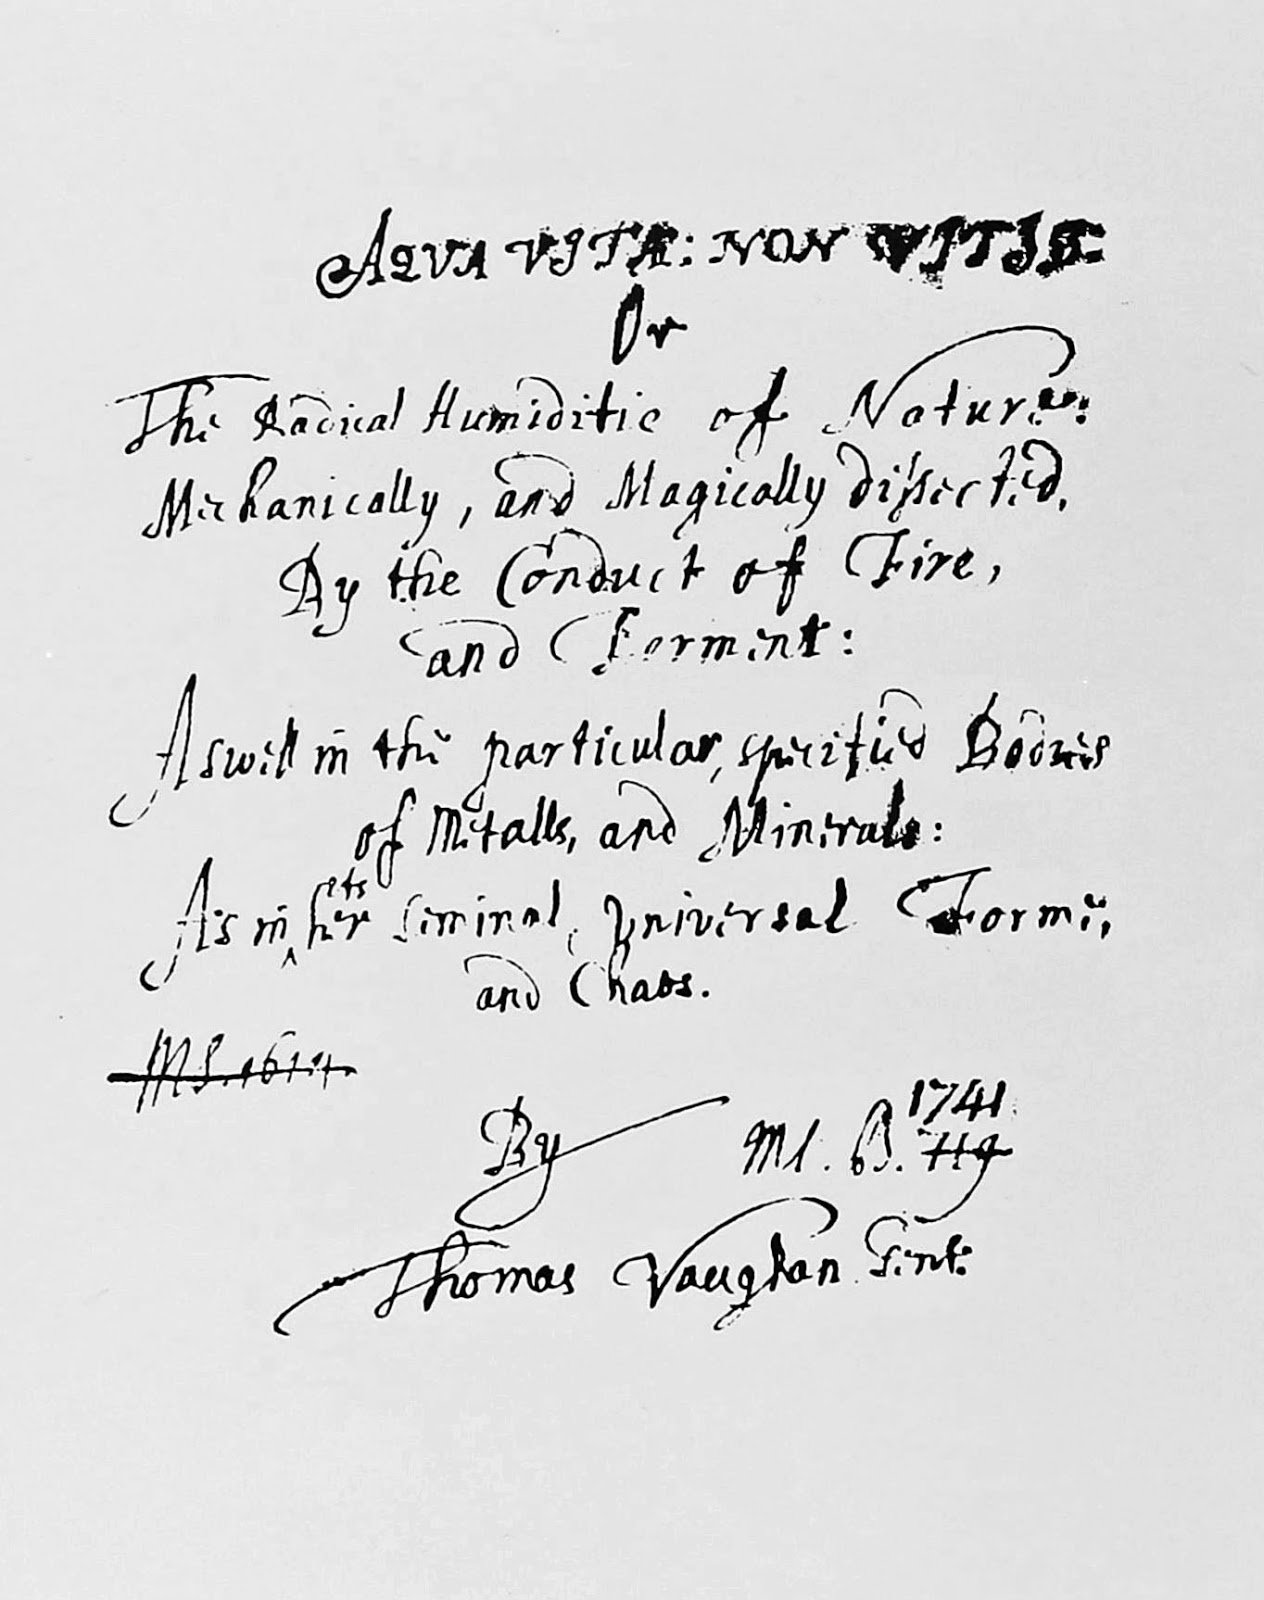 AQVA VITÆ: NON VITIS:
Or
The Radical Humiditie of Nature:
Mechanically, and Magically dissected,
By the Conduct of Fire,
and Ferment:
Aswell in the particular, specified Bodies
of Metalls, and Minerals:
As in its her seminal, Universal Forme,
and Chaos.
MS.
1741
By Ms. B.
Thomas Vaughan Gent: